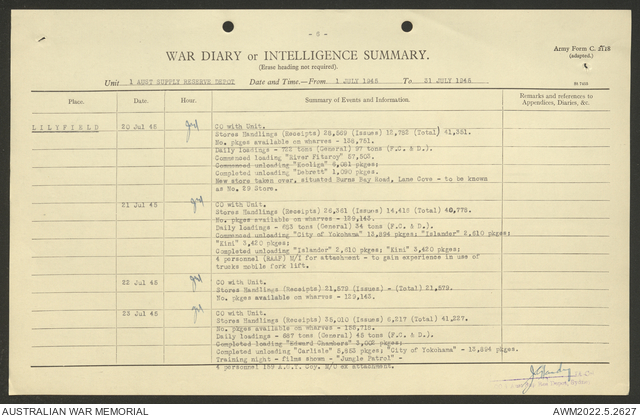 - 8 -
WAR DIARY or INTELLIGENCE SUMMARY.
(Erase heading not required).
Army Form C. 2118
(adapted.)
Unit 1 AUST SUPPLY RESERVE DEPOT Date and Time.—From 1 JULY 1945 To 31 JULY 1945
Place. Date. Hour. Summary of Events and Information. Remarks and references to Appendices, Diaries, &c.
LILYFIELD 20 Jul 45 CO with Unit.
Stores Handlings (Receipts) 28,569 (Issues) 12,782 (Total) 41,351.
No. pkgs available on wharves - 136,751.
Daily loadings - 782 tons (General) 97 tons (F.C. & D.).
Commenced loading "River Fitzroy" 57,502.
Commenced unloading "Kooliga" 6,081 pkges;
Completed unloading "Debrett" 1,090 pkges;
New store taken over, situated Burns Bay Road, Lane Cove - to be known
as No. 29 Store.
21 Jul 45 CO with Unit.
Stores Handlings (Receipts) 26,361 (Issues) 14,419 (Total) 40,775.
No. pkges available on wharves - 129,143.
Daily loadings - 653 tons (General) 34 tons (F.C. & D.).
Commenced unloading "City of Yokohama" 13,894 pkges; "Islander" 2,610 pkges;
"Kini" 3,420 pkges;
Completed unloading "Islander" 2,610 pkges; "Kini" 3,420 pkges;
4 personnel (RAAF) M/I for attachment - to gain experience in use of
trucks mobile fork lift.
22 Jul 45 CO with Unit.
Stores Handlings (Receipts) 21,579 (Issues) - (Total) 21,579.
No. pkges available on wharves - 129,143.
23 Jul 45 CO with Unit.
Stores Handlings (Receipts) 35,010 (Issues) 6,217 (Total) 41,227.
No. pkges available on wharves - 138,715.
Daily loadings - 887 tons (General) 45 tons (F.C. & D.).
Completed loading "Edward Chambers" 3,002 pkges;
Completed unloading "Carlisle" 5,553 pkges; "City of Yokohama" - 13,894 pkges.
Training night - films shown - "Jungle Patrol" -
4 personnel 159 A.G.T. Coy. M/O ex attachment.
AUSTRALIAN WAR MEMORIAL
AWM2022.5.2627